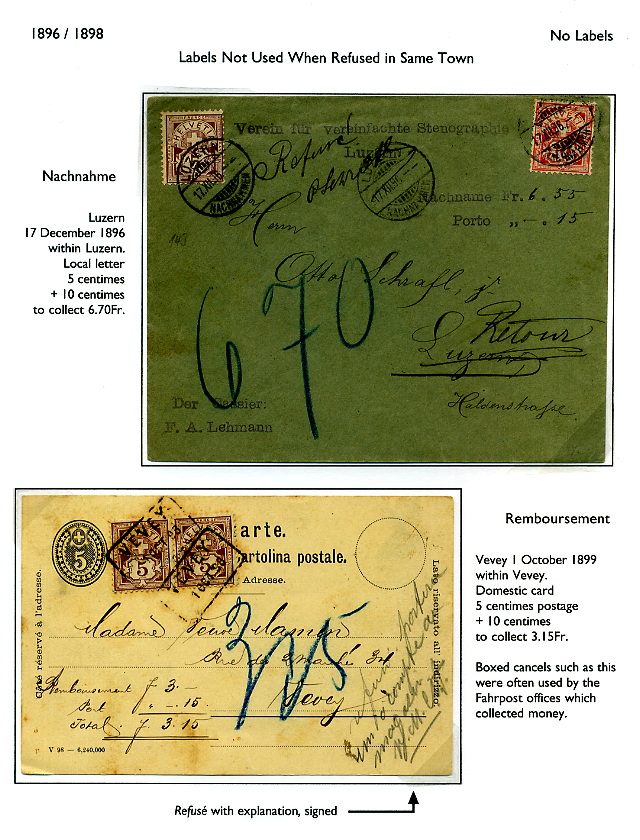 1896 / 1898
No Labels
Labels Not Used When Refused in Same Town
Nachnahme
Luzern
17 December 1896
within Luzern.
Local letter
5 centimes
+ 10 centimes
to collect 6.70Fr.
HELVETIA
Verein für vereinfachte Stenographie
Luzern
Refusé
17.XII.96
NACHNAHMEN
17.XII.96
NACHNAHMEN
Nachnahme Fr. 6. 55
Porto „ -. 15
Herrn
Otto Schrafl, jr
670
Retour
Luzern
Haldenstrasse
Der Cassier:
F. A. Lehmann
Remboursement
Vevey 1 October 1899
within Vevey.
Domestic card
5 centimes postage
+ 10 centimes
to collect 3.15Fr.
Boxed cancels such as this
were often used by the
Fahrpost offices which
collected money.
5
5
VEVEY
arte.
artolina postale.
Adresse.
Côté réservé à l'adresse.
Lato riservato all' indirizzo
Madame Veuve
Rue du Marché 34
Vevey
315
Remboursement f 3.—
Port " -.15
Total f 3.15
V 98 — 6,240,000
Refusé with explanation, signed